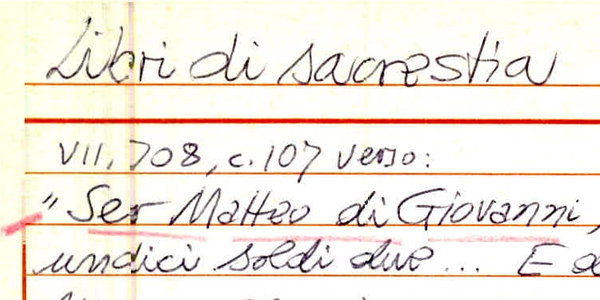 Libri di sacrestia
VII, 708, c. 107 verso:
" Ser Matteo di Giovanni,
undici soldi due ... E